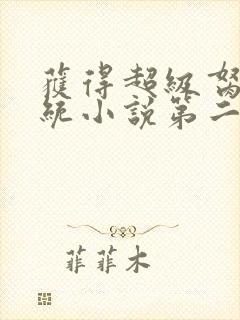 獲得超級
統小說第二
菲菲木